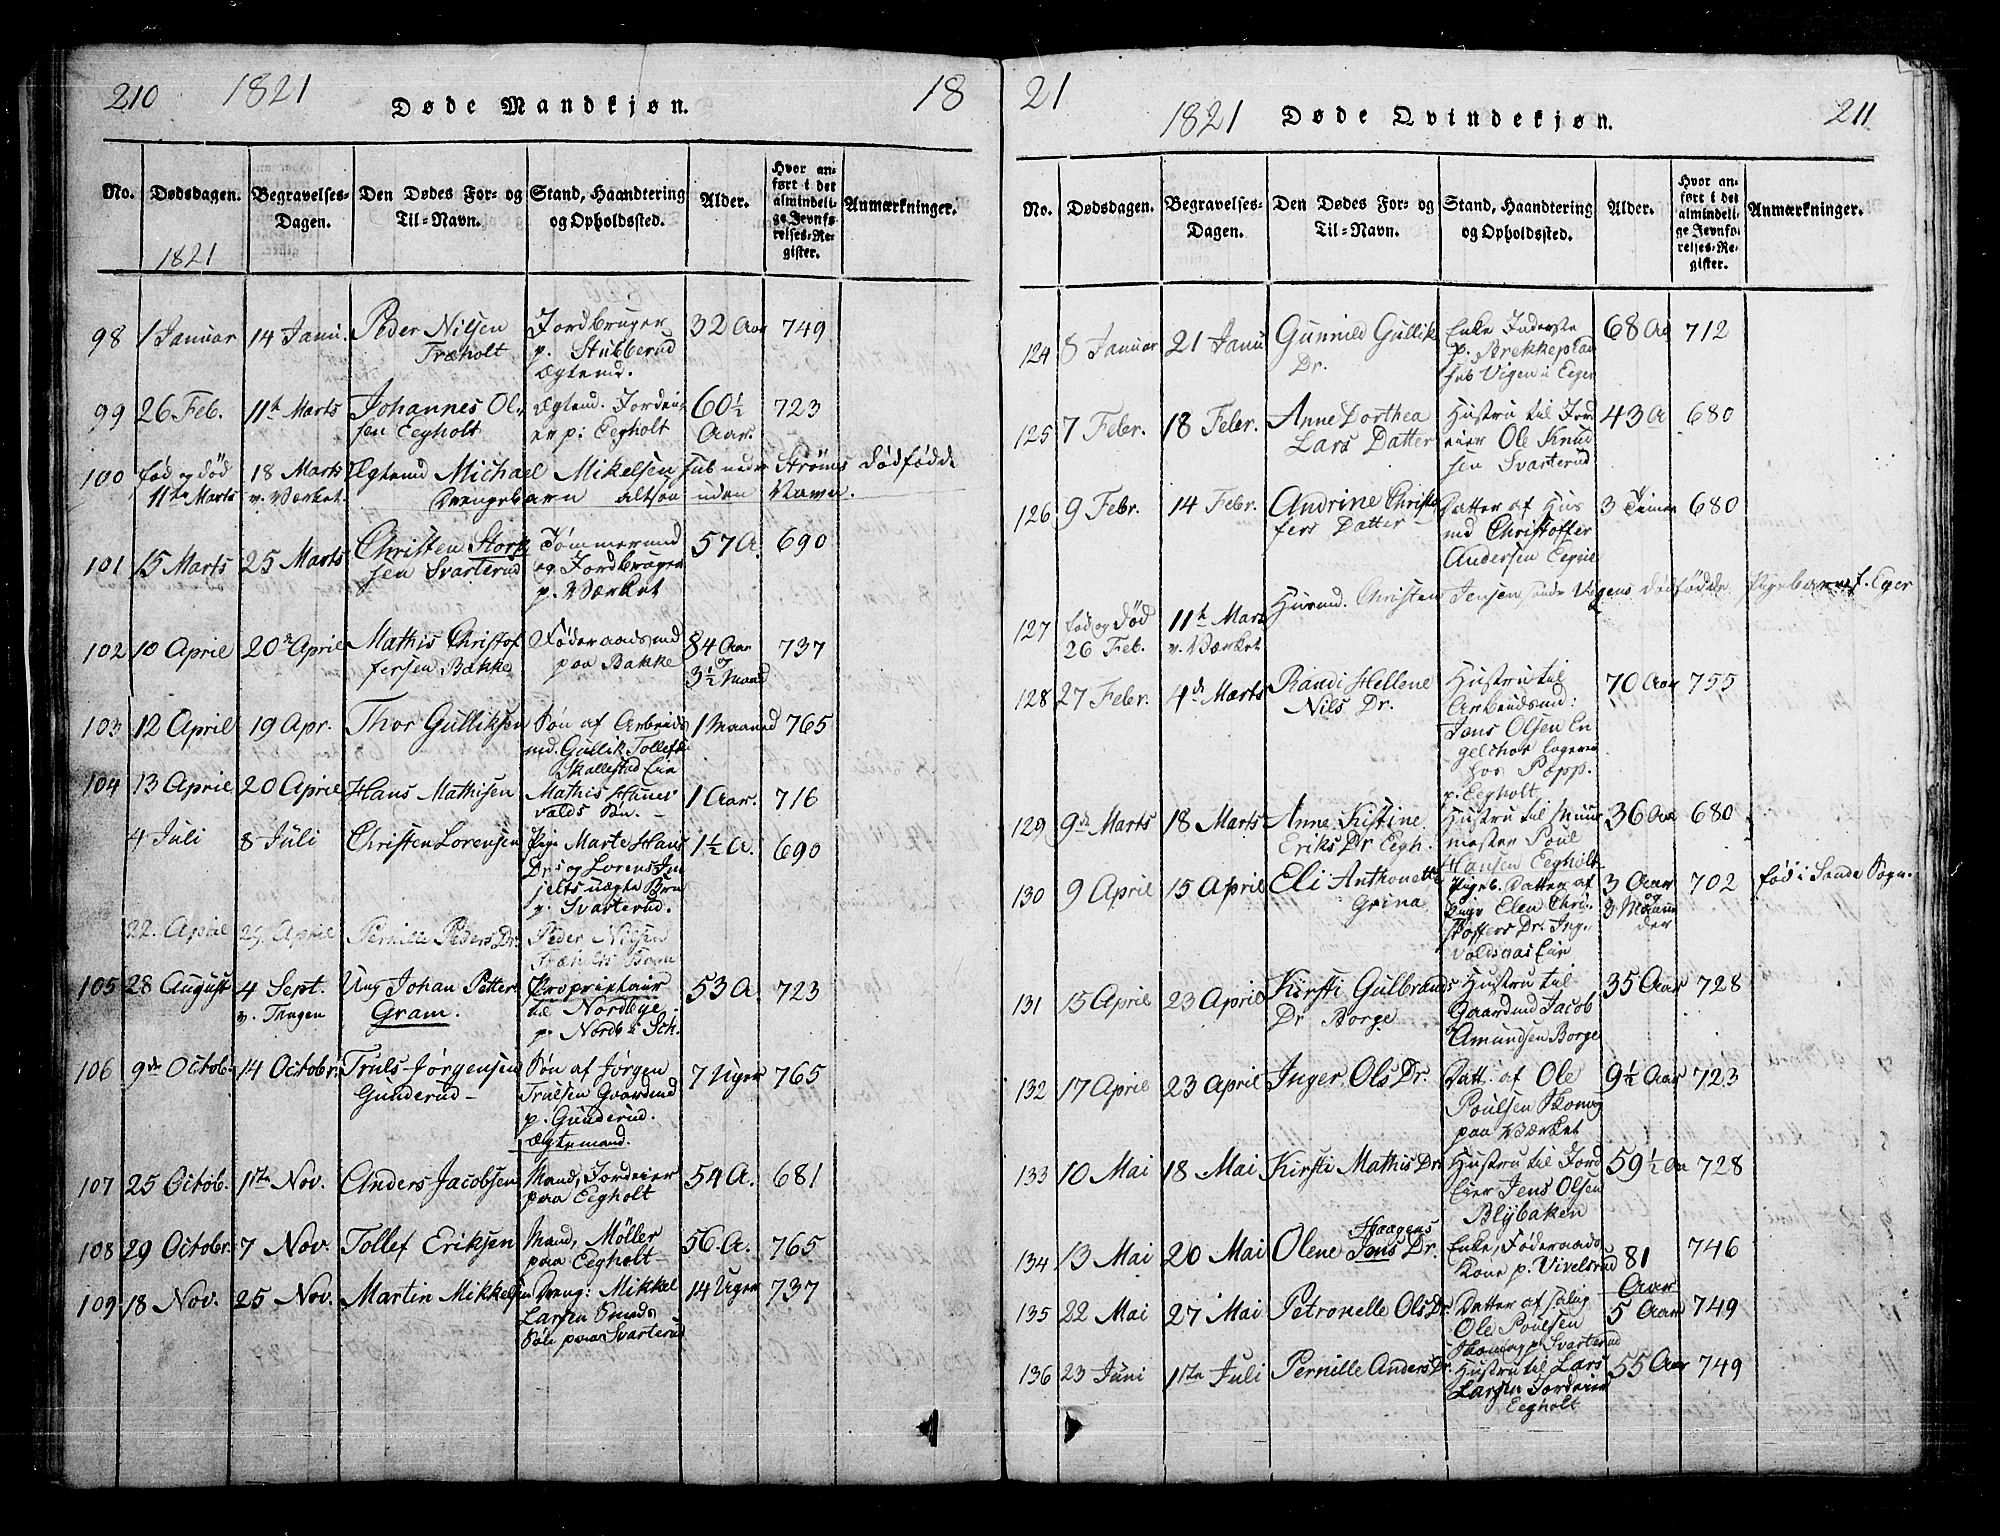 210 1821 Døde Mandkjøn. 18
No. Dødsdagen. Begravelses-Dagen. Den Dødes For- og Til-Navn. Stand, Haandtering og Opholdssted. Alder. Hvor anført i det almindelige Jevnførelses-Register. Anmærkninger.
1821
98 1 Januar 14 Janu. Peder Nilsen Jordbruger 32 Aar 749
Træholt p. Stubberud
Ægtemd.
99 26 Feb. 11te Marts Johannes Ol- Ægtemd. Jordei- 60½ 723
sen Eegholt er p: Eegholt Aar.
100 fød og død 18 Marts Ægtemd Michael Mikelsen Sub neder Ströms dødfødde
11te Marts v. Værket. Drengebarn altsaa uden Navn.
101 15 Marts 25 Marts Christen Storp Tömmermd 57 A. 690
sen Svarterud og Jordbruger
p. Værket
102 10 April 20de April Mathis Christof Föderaadsmd 84 Aar 737
fersen Bakke paa Bakke og 3½ Maand
103 12 April 19 Apr. Thor Gulliksen Søn af Arbeids 1 Maaned 765
md. Gullik Tollefs
Skallestad Eie
104 13 April 20 April Hans Mathisen Mathis Hans 1 Aar. 716
valds Søn. -
4 Juli 8 Juli Christen Lorensen Pige Marte Hans 1½ A. 690
Drs og Lorens In
jelts uægte Brn
p. Svarterud.
22. April 29 April Pernille Peders Dr. Peder Nilsen
Træholts Barn
105 28 August 4 Sept. Ung Johan Petter Proprietair 53 A. 723
v. Tangen Gram. til Nordbye
p. Nordb i Sch.
106 9de Octob. 14 Octobr. Truls Jørgensen Søn af Jørgen 7 Uger 765
Gunderud - Trulsen Gaardmd
p. Gunderud.
Ægtemand.
107 25 Octob. 1ste Nov. Anders Jacobsen Mand, Jordeier 54 A. 681
paa Eegholt
108 29 Octobr. 7 Nov. Tollef Eriksen Mand, Möller 56 A. 765
paa Eegholt -
109 18 Nov. 25 Nov. Martin Mikkelsen Dreng: Mikkel 14 Uger 737
Larsen Smeds
Søn paa Svarterud
21 1821 Døde Qvindekjøn. 211
No. Dødsdagen. Begravelses-Dagen. Den Dødes For- og Til-Navn. Stand, Haandtering og Opholdssted. Alder. Hvor anført i det almindelige Jevnførelses-Register. Anmærkninger.
124 8 Januar 21 Janu Gunnild Gullik Enke Inderste 68 Aa 712
Dr. p. Brekkeplad
sub Vigen i Eeger
125 7 Febr. 18 Febr. Anne Dorthea Hustru til Jord 43 A 680
Lars Datter eier Ole Knud
sen Svarterud
126 9 Febr. 14 Febr. Andrine Christo Datter af Hus 3 Timer 680
fers Datter md Christoffer
Andersen
127 fød og død 11te Mart Husmd. Christen Jensen Vigens dødfødde Pigebarn f. Eger
26 Feb. v. Værket
128 27 Febr. 4de Marts Randi Hellene Hustru til 70 Aar 755
Nils Dr. Arbeidsmd:
Jens Olsen En
gelskhor logerer
hos Popp.
p. Eegholt.
129 9de Marts 18 Marts Anne Kistine Hustru til Muur 36 Aar 680
Eriks Dr Eegh. mester Poul
Hansen Eegholt
130 9 April 15 April Eli Anthonette Pigeb. Datter af 3 Aar 702 fød i Sande Sogn.
Grina Pige Elen Chri- og 3 Maaneder
stoffers Dr. Ing-
valdsaas Eie
131 15 April 23 April Kirsti Gulbrands Hustru til 35 Aar 728
Dr Borge Gaardmd Jacob
Amundsen Borge
132 17 April 23 April Inger Ols Dr. Datt. af Ole 9½ Aar 723
Poulsen Skomag
paa Værket
133 10 Mai 18 Mai Kirsti Mathis Dr Hustru til Jord 59½ Aa 728
Eier Jens Olsen
Blybaken
134 13 Mai 20 Mai Olene Haagens Jens Dr. Enke, Föderaads 81 Aar 746
Kone p. Vivelsrud
135 22 Mai 27 Mai Petronelle Ols Dr. Datter af salig 5 Aar 749
Ole Poulsen
Skomag p. Svarterud
136 23 Juni 1ste Juli Pernille Anders Dr. Hustru til Lars 55 Aar 749
Larsen Jordeier
Eegholt